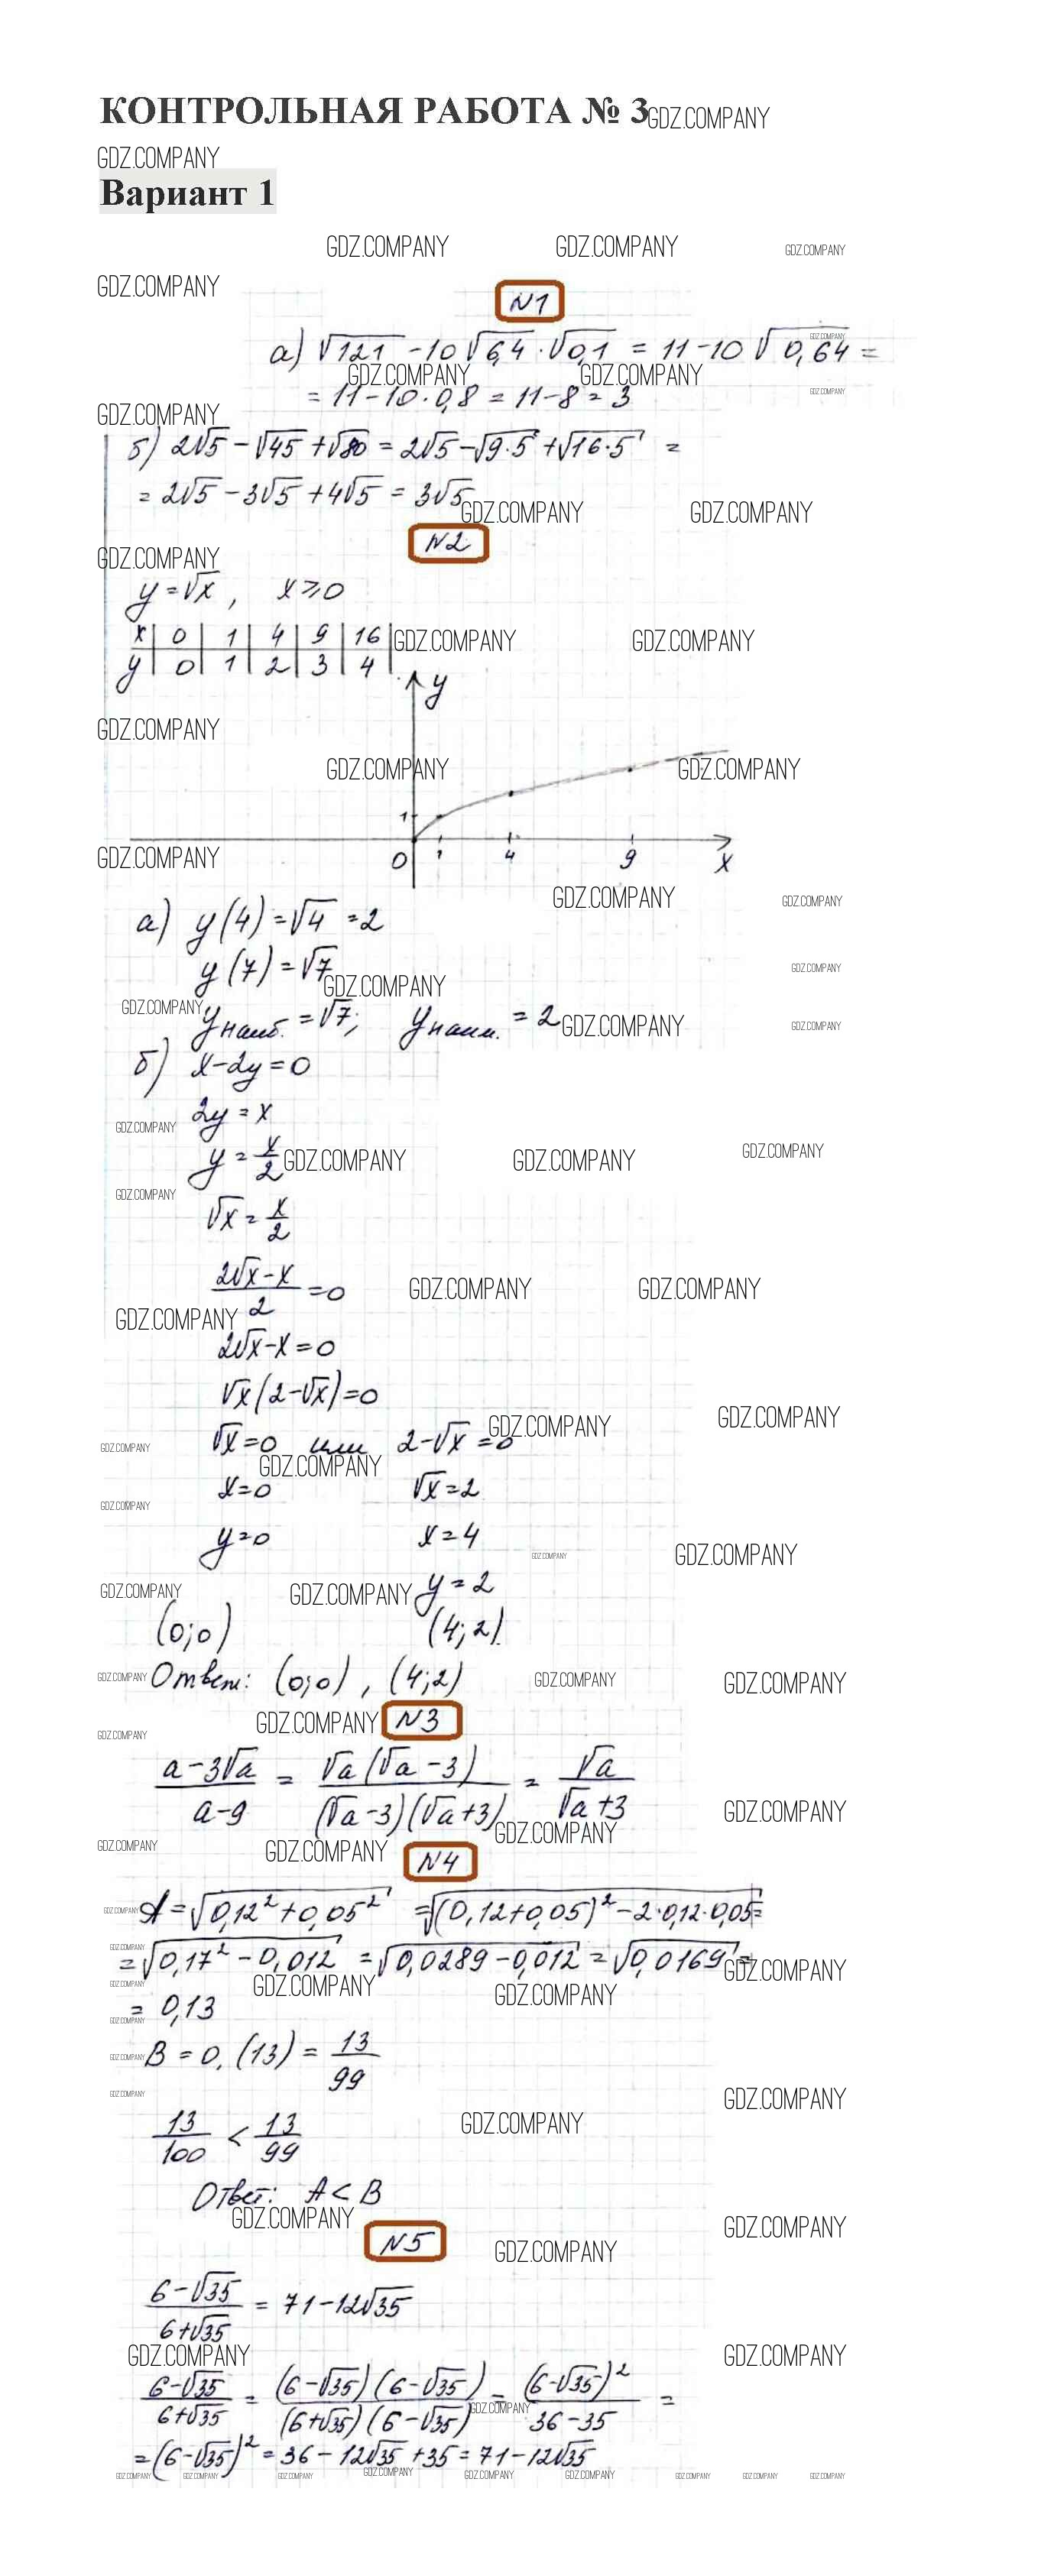 КОНТРОЛЬНАЯ РАБОТА № 3
Вариант 1
N1
а) √121 - 10√6,4 · √0,1 = 11 - 10√0,64 =
= 11 - 10 · 0,8 = 11 - 8 = 3
б) 2√5 - √45 + √80 = 2√5 - √9·5 + √16·5 =
= 2√5 - 3√5 + 4√5 = 3√5
N2
y = √x , x ⩾ 0
x | 0 | 1 | 4 | 9 | 16 |
y | 0 | 1 | 2 | 3 | 4 |
y
1
0 1 4 9 x
а) y(4) = √4 = 2
y(7) = √7
y наиб. = √7; y наим. = 2
б) x - 2y = 0
2y = x
y = x/2
√x = x/2
(2√x - x)/2 = 0
2√x - x = 0
√x(2 - √x) = 0
√x = 0 или 2 - √x = 0
x = 0 √x = 2
y = 0 x = 4
y = 2
(0;0) (4;2)
Ответ: (0;0), (4;2)
N3
(a - 3√a)/(a - 9) = (√a(√a - 3))/((√a - 3)(√a + 3)) = √a/(√a + 3)
N4
A = √0,12² + 0,05² = √(0,12 + 0,05)² - 2·0,12·0,05 =
= √0,17² - 0,012 = √0,0289 - 0,012 = √0,0169 =
= 0,13
B = 0,(13) = 13/99
13/100 < 13/99
Ответ: A < B
N5
(6 - √35)/(6 + √35) = 71 - 12√35
(6 - √35)/(6 + √35) = ((6 - √35)(6 - √35))/((6 + √35)(6 - √35)) = (6 - √35)²/(36 - 35) =
= (6 - √35)² = 36 - 12√35 + 35 = 71 - 12√35
GDZ.COMPANY